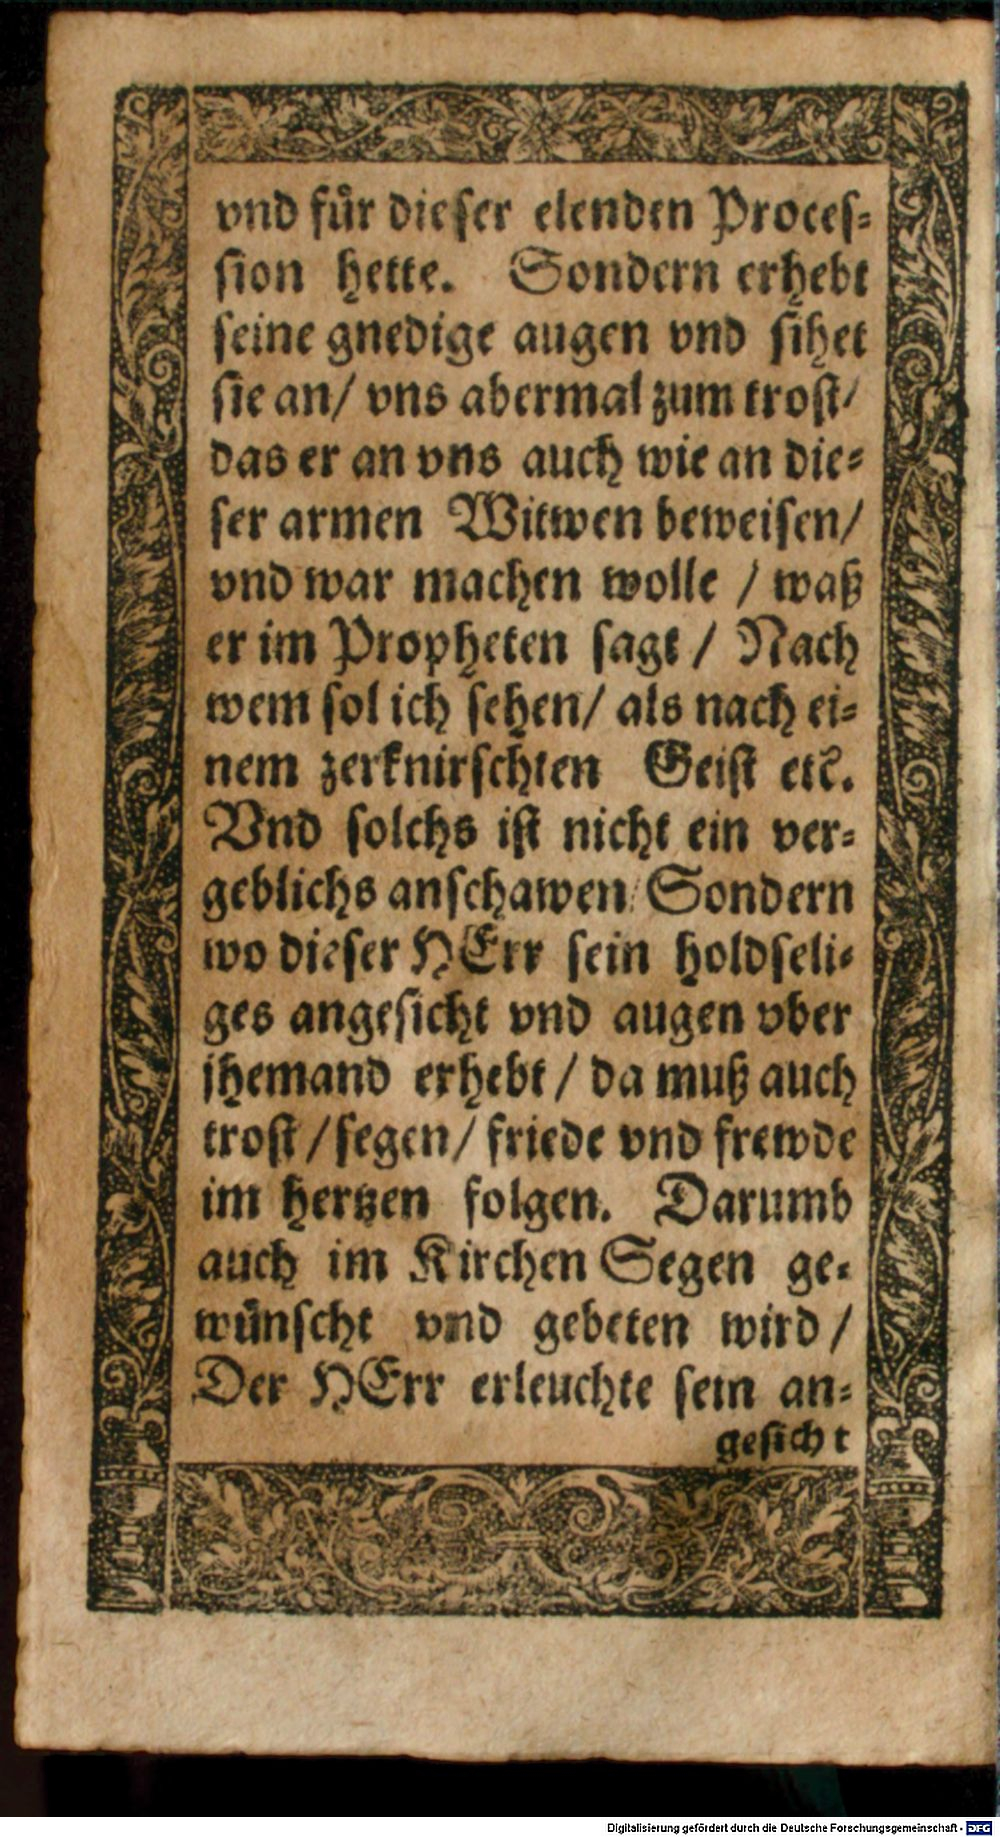 vnd fuͤr dieſer elenden Proceſ⸗
ſion hette. Sondern erhebt
ſeine gnedige augen vnd ſihet
ſie an/ vns abermal zum troſt/
das er an vns auch wie an die⸗
ſer armen Witwen beweiſen/
vnd war machen wolle / waß
er im Propheten ſagt / Nach
wem ſol ich ſehen/ als nach ei⸗
nem zerknirſchten Geiſt etc.
Vnd ſolchs iſt nicht ein ver⸗
geblichs anſchawen/ Sondern
wo dieſer HErr ſein holdſeli⸗
ges angeſicht vnd augen vber
jhemand erhebt / da muß auch
troſt / ſegen/ friede vnd frewde
im hertzen folgen. Darumb
auch im Kirchen Segen ge⸗
wuͤnſcht vnd gebeten wird /
Der HErr erleuchte ſein an⸗
geſicht
Digitalisierung gefördert durch die Deutsche Forschungsgemeinschaft - DFG